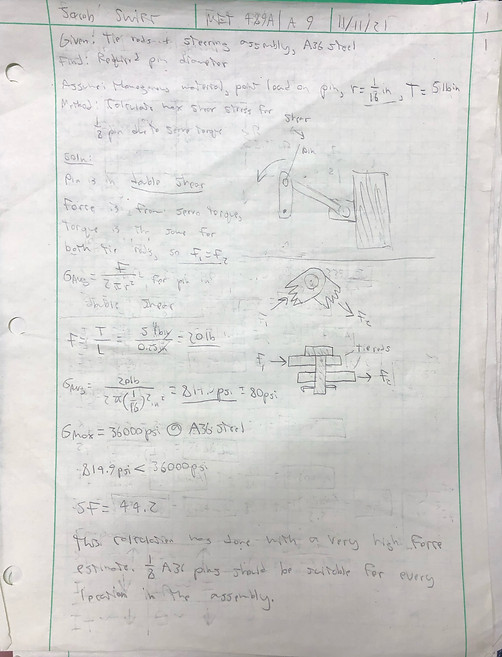 Jacob Swift MET 489A A 9 11/11/21 1
Given: Tie rods + steering assembly, A36 steel 1
Find: Required pin diameter
Assume: Homogenous material, point load on pin, r = 1/16 in, T = 5 lbin
Method: Calculate max shear stress for
1/8 pin due to servo torque
shear
pin
Soln:
Pin is in double shear
Force is from servo torque,
torque is the same for
both tie rods, so F₁=F₂
σavg = F/2πr² for pin in
double shear
F₁ F₂
F = T/L = 5 lbin/0.25in = 20 lb
tie rods
F₁ F₂
σavg = 20lb/2π(1/16)² in² = psi ± 80psi
σmax = 36000psi @ A36 steel
814.9psi < 36000psi
SF = 44.2
This calculation was done with a very high force
estimate. 1/8 A36 pins should be suitable for every
location in the assembly.